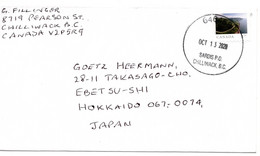 G. FILLINGER
8719 PEARSON ST.
CHILLIWACK B.C.
CANADA V2P5R9
OCT 13 2020
SARDIS P.O.
CHILLIWACK, B.C.
CANADA
GOETZ HEERMANN,
28-11 TAKASAGO-CHO,
EBETSU-SHI
HOKKAIDO 067-0074,
JAPAN